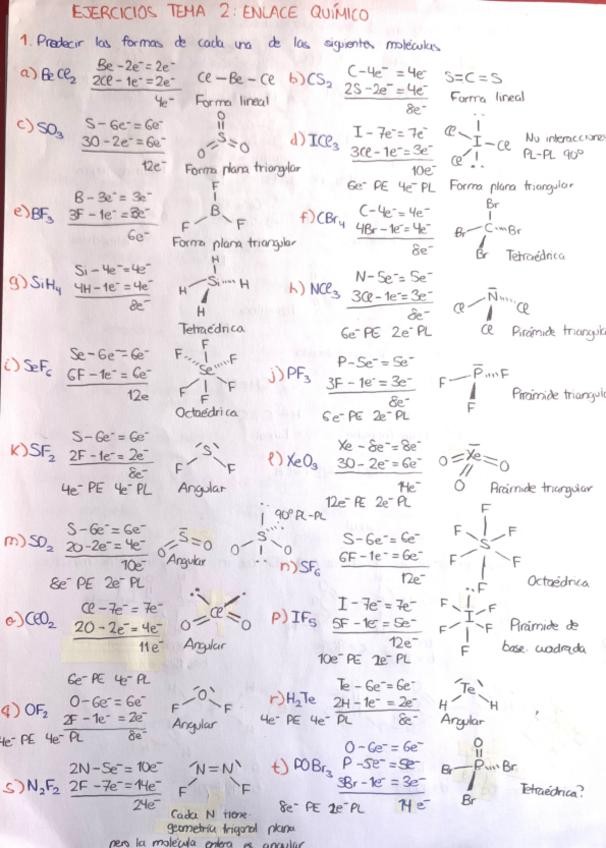 EJERCICIOS TEMA 2: ENLACE QUÍMICO
1. Predecir las formas de cada una de las siguientes moléculas
a) BeCl₂ Be - 2e⁻ = 2e⁻
2Cl - 1e⁻ = 2e⁻
4e⁻
Cl — Be — Cl
Forma lineal
b) CS₂ C - 4e⁻ = 4e⁻
2S - 2e⁻ = 4e⁻
8e⁻
S=C=S
Forma lineal
c) SO₃ S - 6e⁻ = 6e⁻
3O - 2e⁻ = 6e⁻
12e⁻
O
S
O O
Forma plana triangular
d) ICl₃ I - 7e⁻ = 7e⁻
3Cl - 1e⁻ = 3e⁻
10e⁻
6e⁻ PE 4e⁻ PL
Cl
I — Cl
Cl
No interacciones
PL-PL 90°
Forma plana triangular
e) BF₃ B - 3e⁻ = 3e⁻
3F - 1e⁻ = 3e⁻
6e⁻
F
B
F F
Forma plana triangular
f) CBr₄ C - 4e⁻ = 4e⁻
4Br - 1e⁻ = 4e⁻
8e⁻
Br
Br C Br
Br
Tetraédrica
g) SiH₄ Si - 4e⁻ = 4e⁻
4H - 1e⁻ = 4e⁻
8e⁻
H
H Si H
H
Tetraédrica
h) NCl₃ N - 5e⁻ = 5e⁻
3Cl - 1e⁻ = 3e⁻
8e⁻
6e⁻ PE 2e⁻ PL
N
Cl Cl
Cl
Pirámide triangula
i) SeF₆ Se - 6e⁻ = 6e⁻
6F - 1e⁻ = 6e⁻
12e
F
F F
Se
F F
F
Octaédrica
j) PF₃ P - 5e⁻ = 5e⁻
3F - 1e⁻ = 3e⁻
8e⁻
6e⁻ PE 2e⁻ PL
F P F
F
Pirámide triangula
k) SF₂ S - 6e⁻ = 6e⁻
2F - 1e⁻ = 2e⁻
8e⁻
4e⁻ PE 4e⁻ PL
S
F F
Angular
l) XeO₃ Xe - 8e⁻ = 8e⁻
3O - 2e⁻ = 6e⁻
14e⁻
12e⁻ PE 2e⁻ PL
O=Xe=O
O
Pirámide triangular
m) SO₂ S - 6e⁻ = 6e⁻
2O - 2e⁻ = 4e⁻
10e⁻
8e⁻ PE 2e⁻ PL
O=S=O
Angular
90° PL-PL
S
O O
n) SF₆ S - 6e⁻ = 6e⁻
6F - 1e⁻ = 6e⁻
12e⁻
F
F F
S
F F
F
Octaédrica
o) ClO₂ Cl - 7e⁻ = 7e⁻
2O - 2e⁻ = 4e⁻
11e⁻
6e⁻ PE 4e⁻ PL
Cl
O O
Angular
p) IF₅ I - 7e⁻ = 7e⁻
5F - 1e⁻ = 5e⁻
12e⁻
10e⁻ PE 2e⁻ PL
F F
I
F F
F
Pirámide de
base cuadrada
q) OF₂ O - 6e⁻ = 6e⁻
2F - 1e⁻ = 2e⁻
8e⁻
4e⁻ PE 4e⁻ PL
O
F F
Angular
r) H₂Te Te - 6e⁻ = 6e⁻
2H - 1e⁻ = 2e⁻
8e⁻
4e⁻ PE 4e⁻ PL
Te
H H
Angular
s) N₂F₂ 2N - 5e⁻ = 10e⁻
2F - 7e⁻ = 14e⁻
24e⁻
N=N
F F
Cada N tiene
geometría trigonal plana
pero la molécula entera es angular
t) POBr₃ O - 6e⁻ = 6e⁻
P - 5e⁻ = 5e⁻
3Br - 1e⁻ = 3e⁻
14e⁻
8e⁻ PE 2e⁻ PL
O
Br P Br
Br
Tetraédrica?